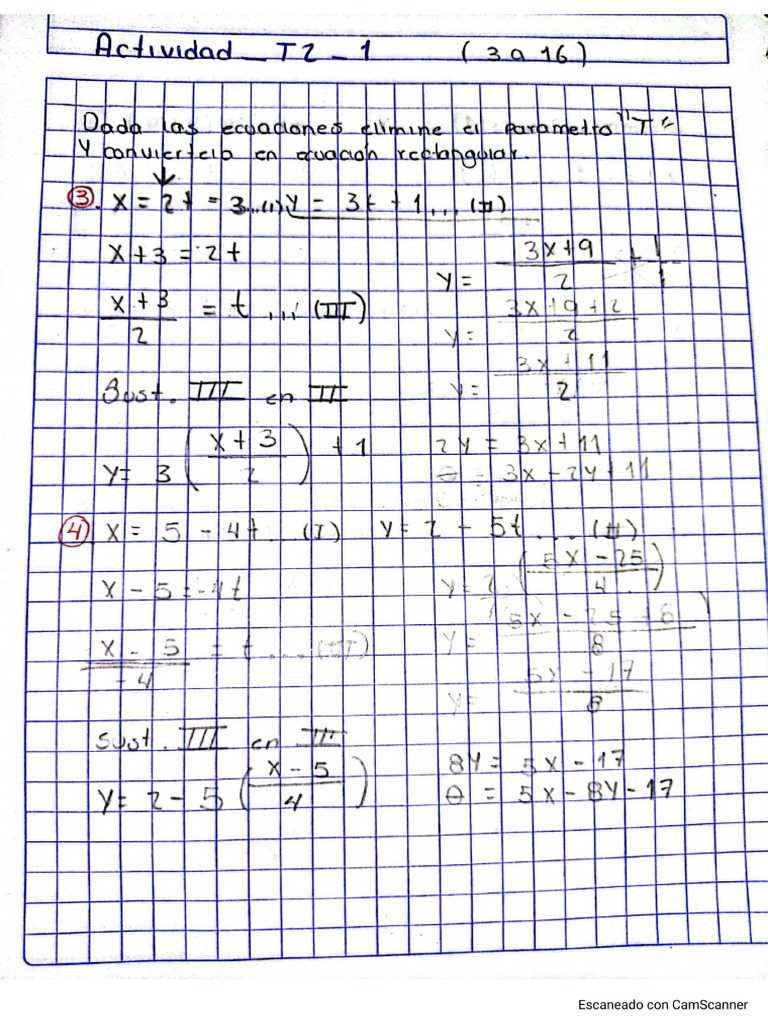 Actividad _ T2 _ 1 (3 a 16)
Dada las ecuaciones elimine el parametro "T"
Y conviertelo en ecuación rectangular.
③. x = 2t = 3...(I) y = 3t + 1 ... (II)
x + 3 = 2t
x + 3 / 2 = t ... (III)
Sust. III en II
y = 3 ( x + 3 / 2 ) + 1
y = 3x+9 / 2 + 1 / 1
y = 3x + 9 + 2 / 2
y = 3x + 11 / 2
2y = 3x + 11
0 = 3x - 2y + 11
④ x = 5 - 4t ... (I) y = 2 - 5t ... (II)
x - 5 = -4t
x - 5 / -4 = t ... (III)
Sust. III en II
y = 2 - 5 ( x - 5 / 4 )
y = 2 / 1 ( 5x - 25 / 4 )
y = 5x - 25 + 8 / 8
y = 5x - 17 / 8
8y = 5x - 17
0 = 5x - 8y - 17
Escaneado con CamScanner